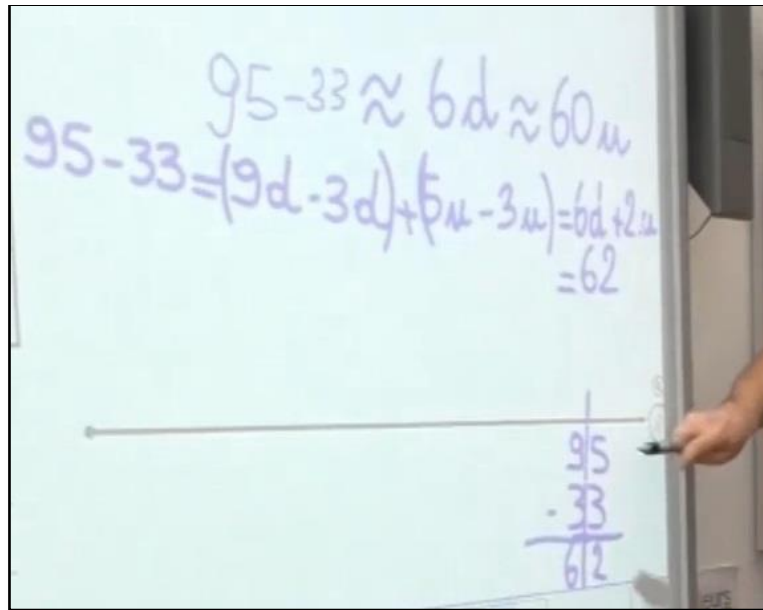 95-33 ≈ 6d ≈ 60u
95-33=(9d-3d)+(5u-3u)=6d+2u
=62
95
- 33
62
EURS